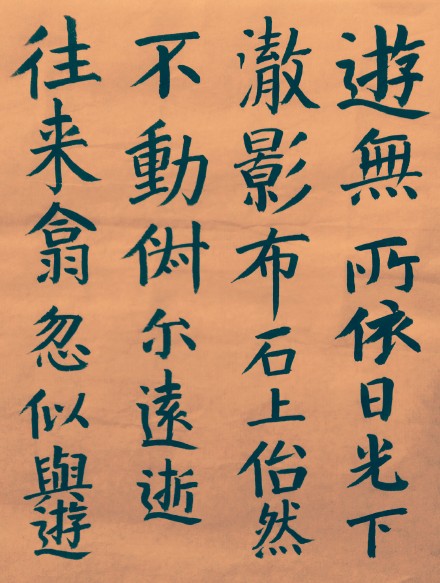 遊無所依日光下
澈影布石上佁然
不動俶尔遠逝
往来翕忽似與遊